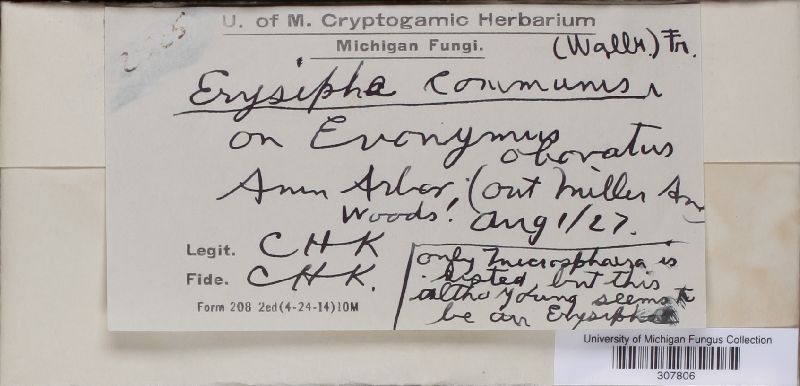 U. of M. Cryptogamic Herbarium
Michigan Fungi.
(Wallr.) Fr.
Erysiphe communis
on Evonymus obovatus
Ann Arbor (out Miller Ave
Woods! Aug 1/27.
Legit. CHK
Fide. CHK.
only microsphaera is
listed but this
altho young seems to
be an Erysiphe
Form 208 2ed(4-24-14)10M
University of Michigan Fungus Collection
307806